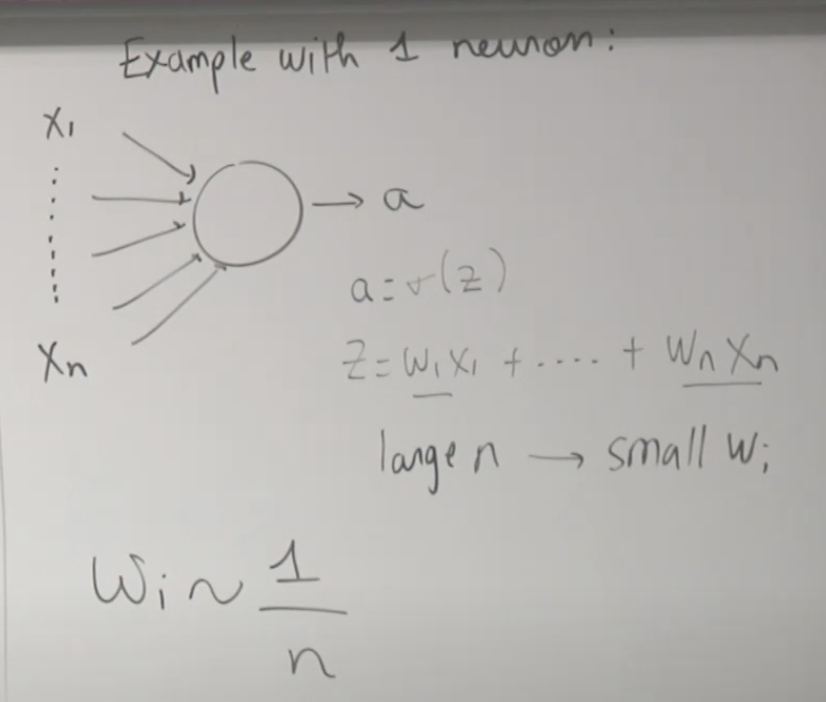 Example with 1 neuron:
x₁
→ a
a = σ(z)
z = w₁x₁ + .... + wₙxₙ
xₙ
large n → small wᵢ
wᵢ ~ 1/n